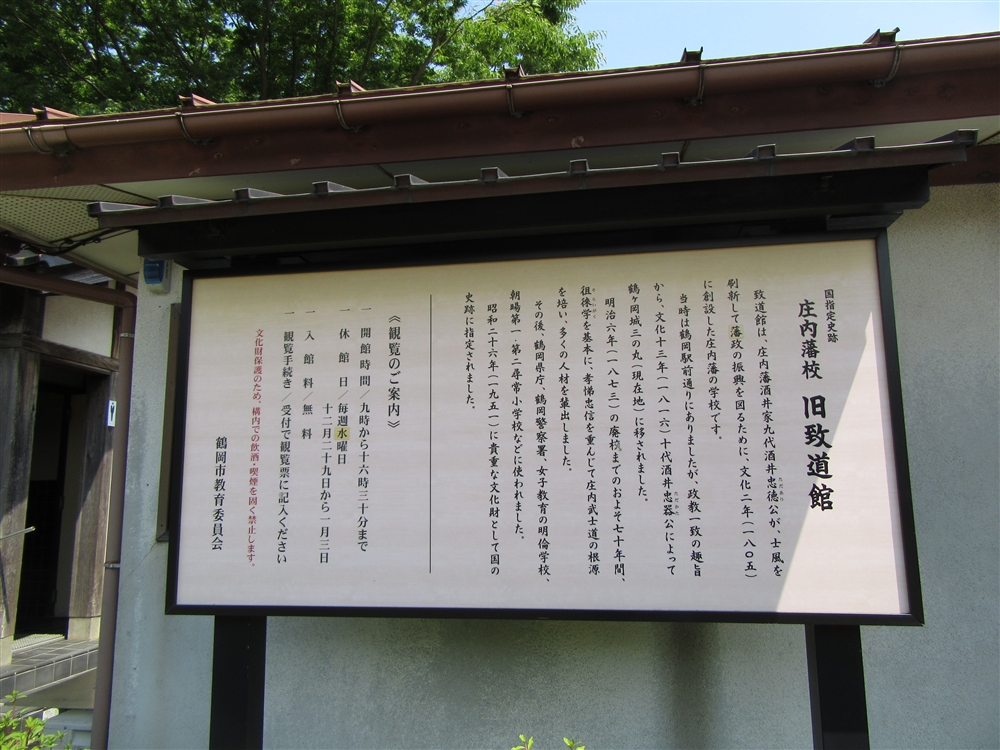 国指定史跡
庄内藩校 旧致道館
致道館は、庄内藩酒井家九代酒井忠徳公が、士風を
ただあり
刷新して藩政の振興を図るために、文化二年(一八〇五)
に創設した庄内藩の学校です。
当時は鶴岡駅前通りにありましたが、政教一致の趣旨
から、文化十三年(一八一六)十代酒井忠器公によって
ただかた
鶴ヶ岡城三の丸(現在地)に移されました。
明治六年(一八七三)の廃校までのおよそ七十年間、
徂徠学を基本に、孝悌忠信を重んじて庄内武士道の根源
そらいがく
を培い、多くの人材を輩出しました。
その後、鶴岡県庁、鶴岡警察署、女子教育の明倫学校、
朝暘第一・第二尋常小学校などに使われました。
昭和二十六年(一九五一)に貴重な文化財として国の
史跡に指定されました。
《観覧のご案内》
一 開館時間/九時から十六時三十分まで
一 休館日/毎週水曜日
十二月二十九日から一月三日
一 入館料/無料
一 観覧手続き/受付で観覧票に記入ください
文化財保護のため、構内での飲酒・喫煙を固く禁止します。
鶴岡市教育委員会